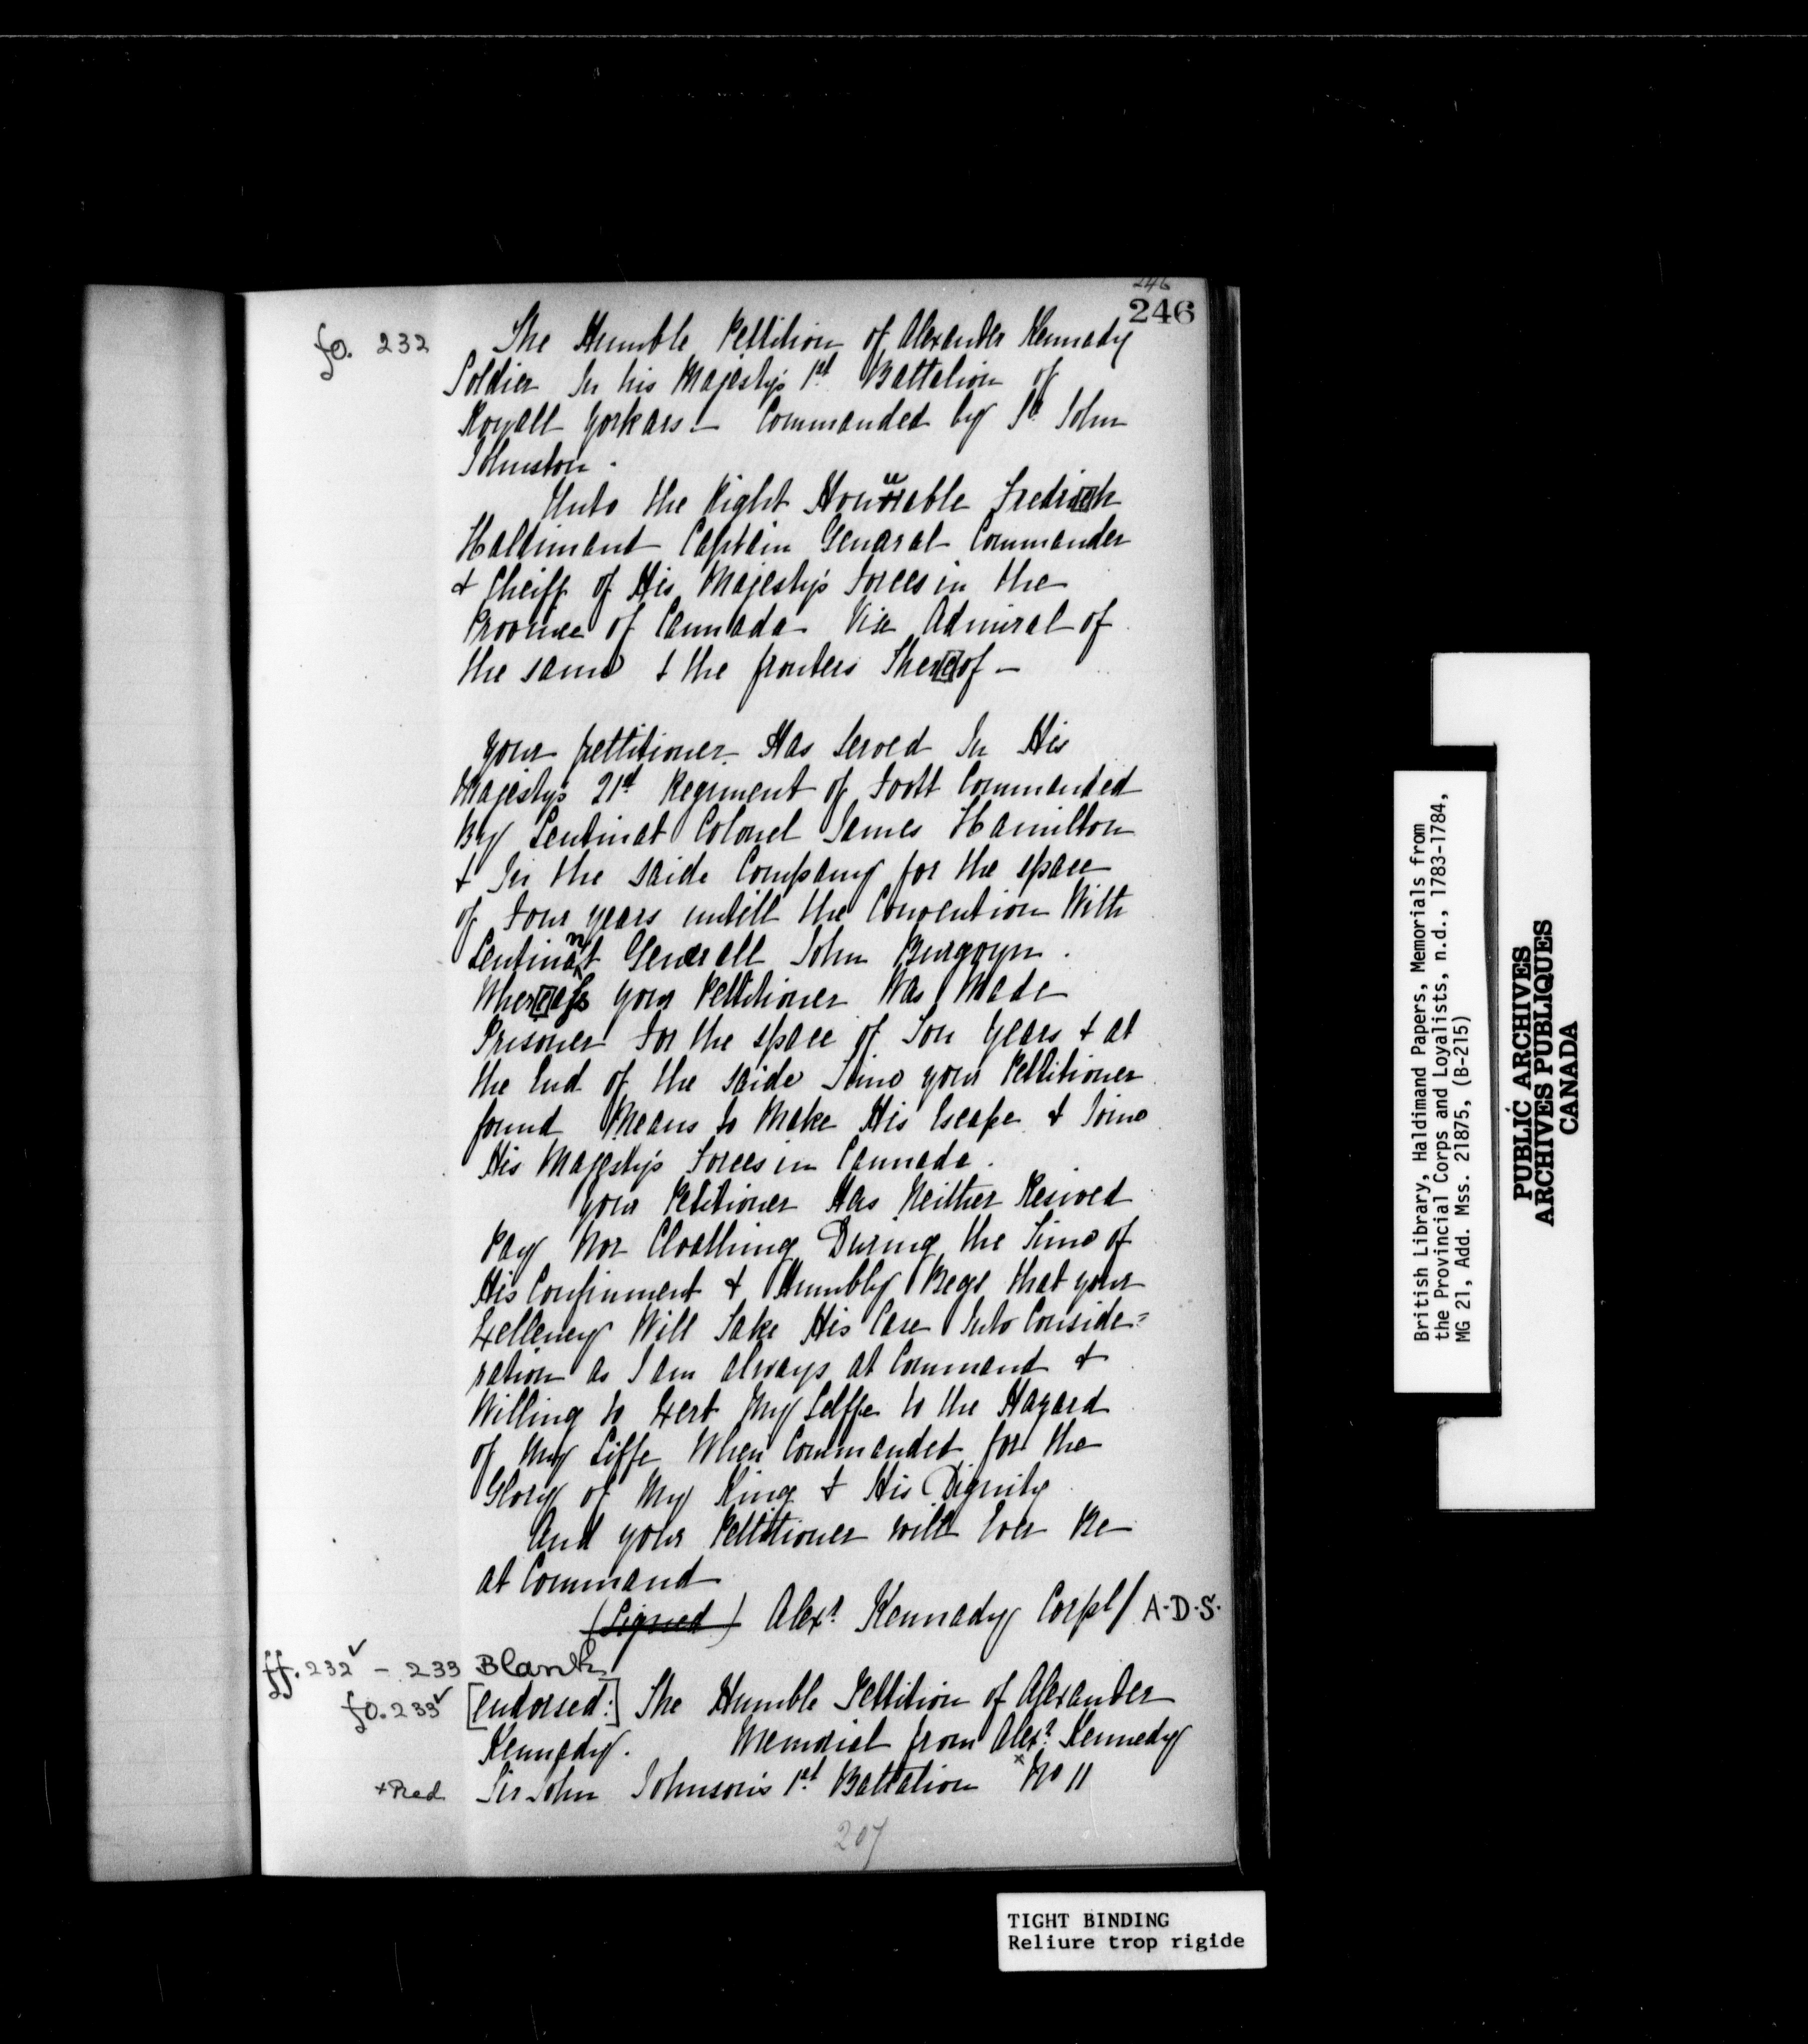 246
246
fo. 232
The Humble Pettition of Alexander Kennady
Soldier In his Majestys 1st Battalion of
Royall Yorkars – Commanded by Sr John
Johnston.
Unto the Right Honuerable Fredri[c]k
Haldimand Captain Genaral Commander
& Cheiff of His Majestys forces in the
Province of Cannada Vice Admiral of
the same & the fronters Ther[e]of –
your pettitioner Has Served In His
Majestys 21st Regiment of Foott Commanded
By Leutinat Colonel James Hamilton
& In the saide Company for the space
of Four years untill the Convention With
Leutinant Generall John Burgoyn.
Wher[e]ass your Pettitioner Was Made
Prisoner For the space of Tou years & at
the End of the saide Time your Pettitioner
found Means to Make His Escape & Joine
His Majestys Forces in Cannada.
your Petitioner Has Neither Resived
Pay Nor Cloathing During the Time of
His Confinment & Humbly Begs that your
Exellency Will Take His Case Into Conside=
ration as I am always at Command &
Willing to Exert My Selffe to the Hazard
of My Liffe When Commanded for the
Glory of My King & His Dignity
And your Pettitioner will Ever Be
at Command
(Signed) Alexr. Kennady Corpl/ A.D.S.
ff. 232v – 233 Blank
fo. 233v [endorsed:] The Humble Pettition of Alexander
Kennady. Memorial from Alexr. Kennedy
+Red Sir John Johnson's 1st Battalion xNo 11
207
British Library, Haldimand Papers, Memorials from
the Provincial Corps and Loyalists, n.d., 1783-1784,
MG 21, Add. Mss. 21875, (B-215)
PUBLIC ARCHIVES
ARCHIVES PUBLIQUES
CANADA
TIGHT BINDING
Reliure trop rigide